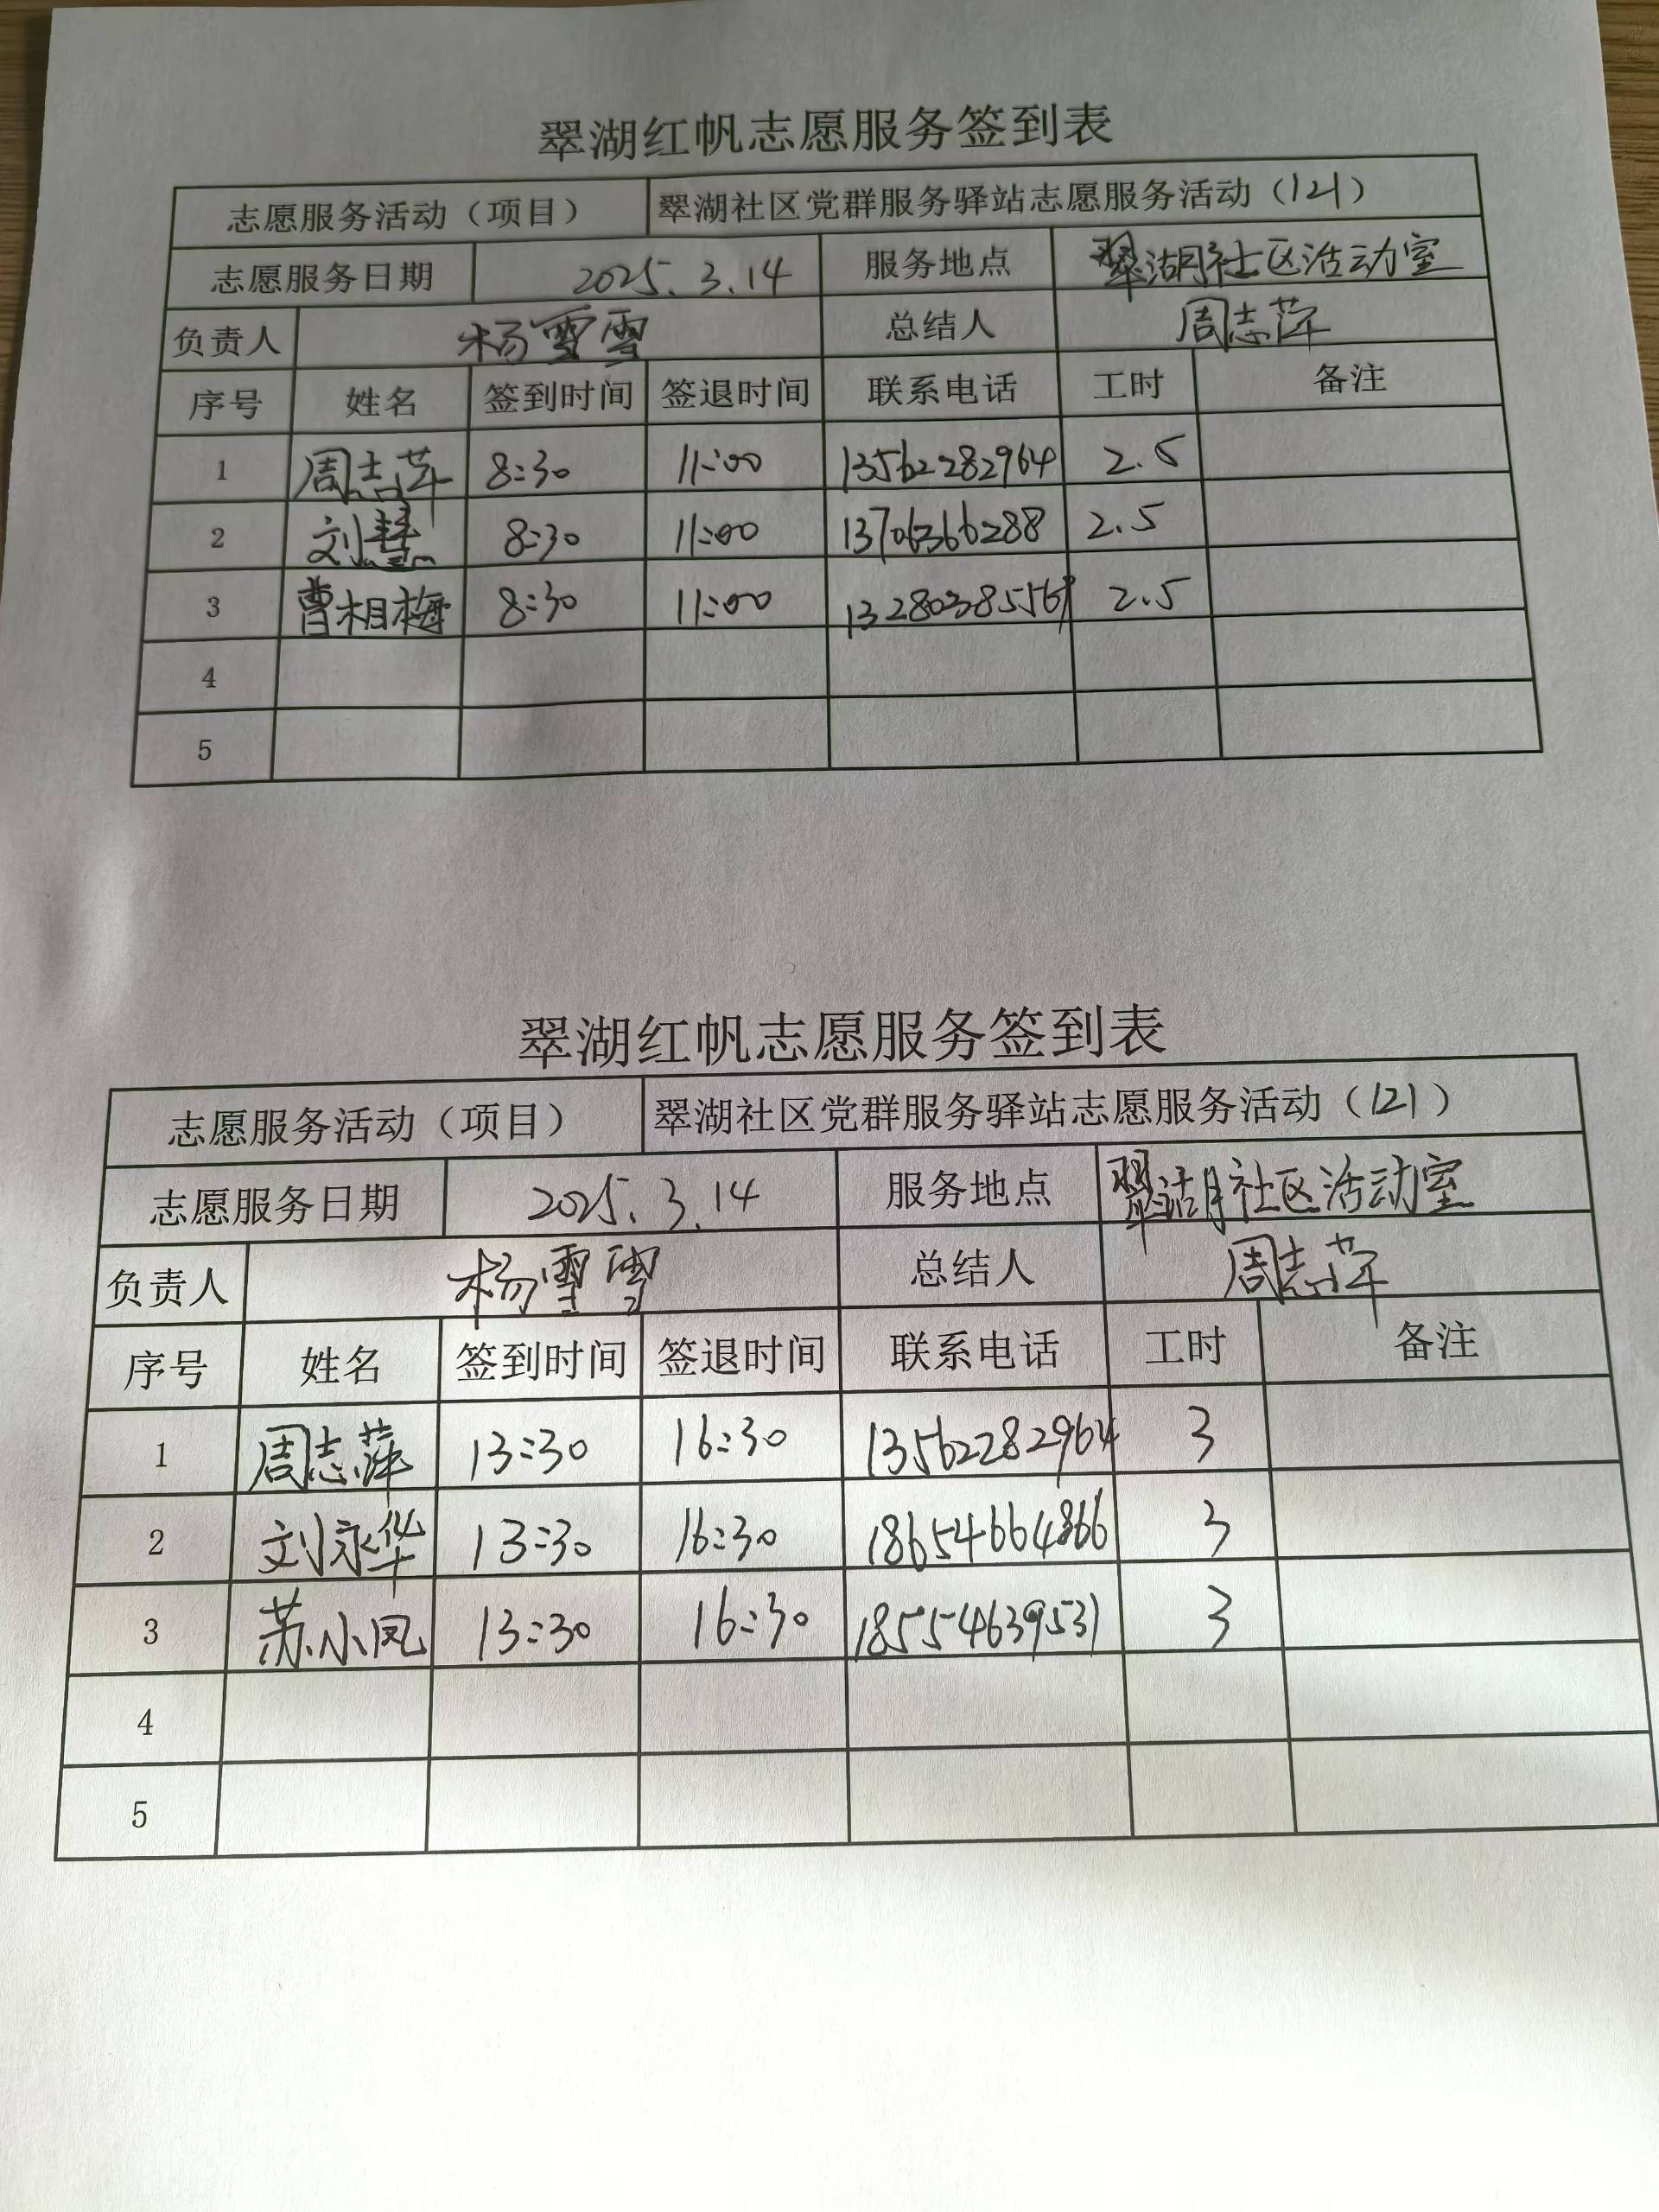 翠湖红帆志愿服务签到表
志愿服务活动（项目） 翠湖社区党群服务驿站志愿服务活动（121）
志愿服务日期 2025.3.14 服务地点 翠湖社区活动室
负责人 杨雪雪 总结人 周志萍
序号 姓名 签到时间 签退时间 联系电话 工时 备注
1 周志萍 8:30 11:00 13562282964 2.5
2 刘慧 8:30 11:00 13706366288 2.5
3 曹相梅 8:30 11:00 2.5
4
5
翠湖红帆志愿服务签到表
志愿服务活动（项目） 翠湖社区党群服务驿站志愿服务活动（121）
志愿服务日期 2025.3.14 服务地点 翠湖社区活动室
负责人 杨雪雪 总结人 周志萍
序号 姓名 签到时间 签退时间 联系电话 工时 备注
1 周志萍 13:30 16:30 13562282964 3
2 刘永华 13:30 16:30 18654664866 3
3 苏小凤 13:30 16:30 18554639531 3
4
5